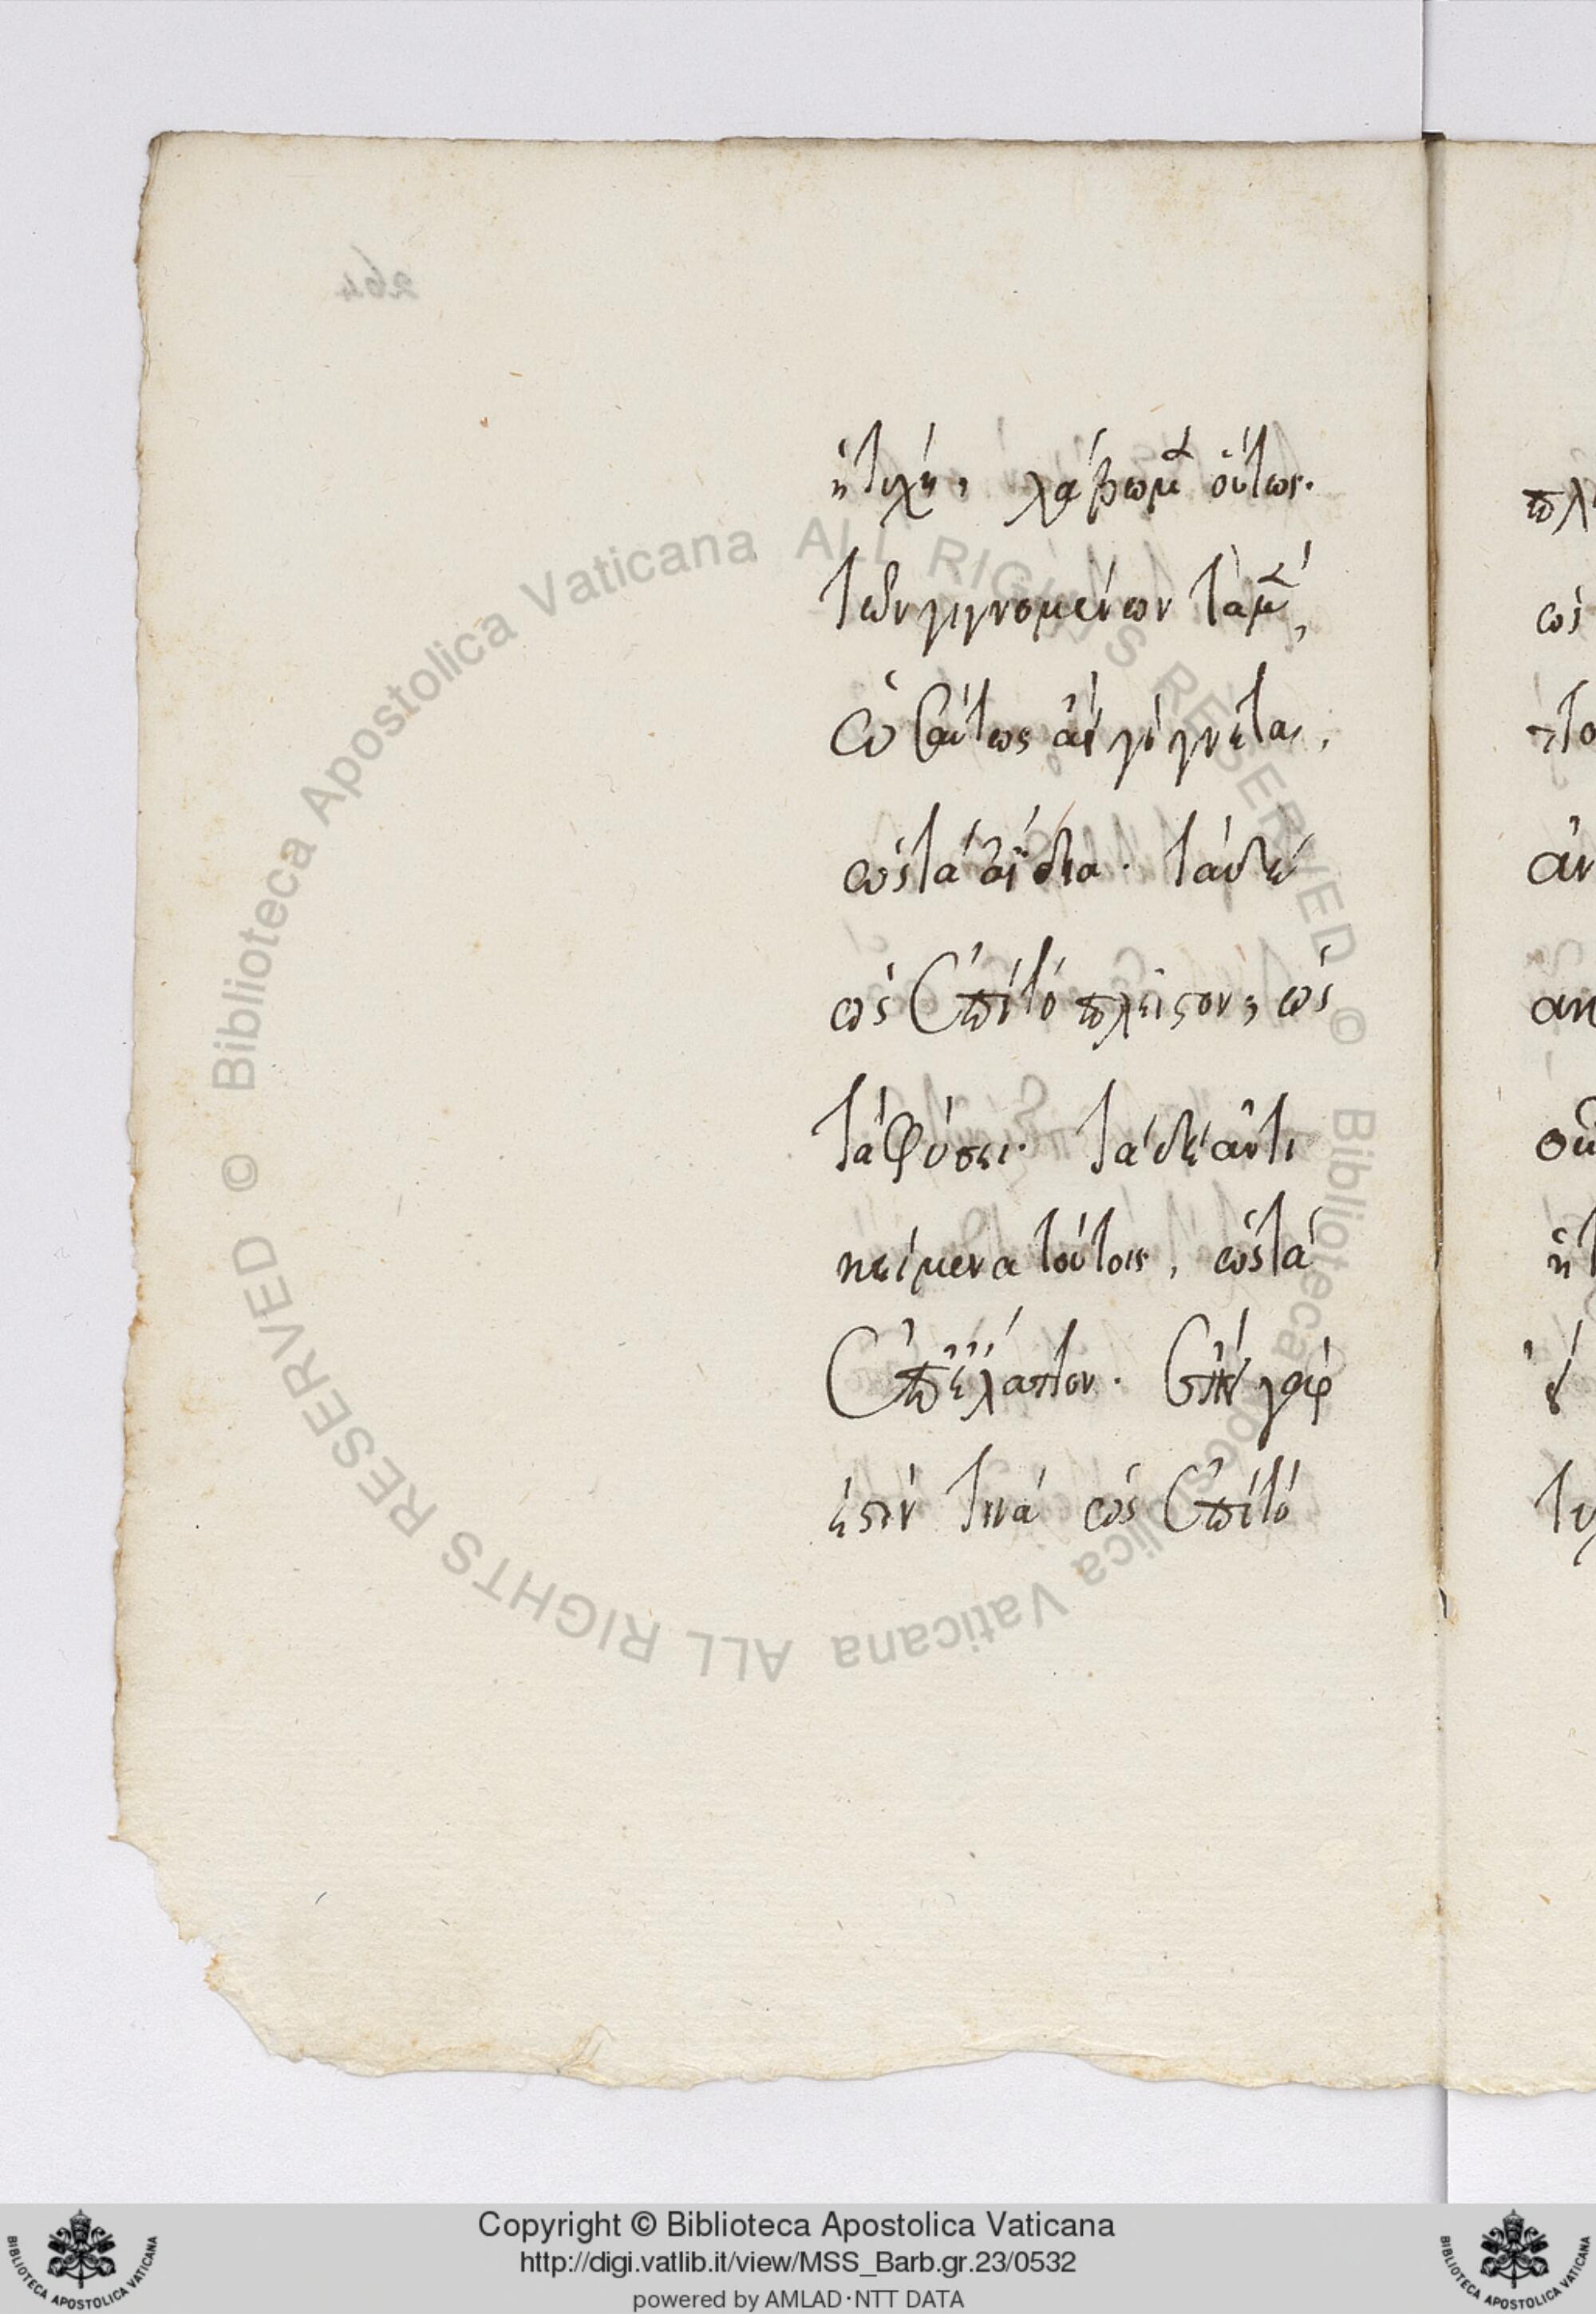 264
ἡ τύχη, λάβωμ(εν) οὕτως.
τῶν γιγνομένων τὰ μ(ὲν),
ὡσαύτως ἀεὶ γίγνεται,
ὡς τὰ ἀΐδια. τὰ δὲ
ὡς ἐπὶ τὸ πλεῖστον, ὡς
τὰ φύσει. τὰ δὲ ἀντι
κείμενα τούτοις, ὡς τὰ
ἐπ' ἔλαττον. ἐπεὶ γάρ
ἐστίν τινὰ ὡς ἐπὶ τὸ
πλ
ὡς
το
ἀν
ἀν
οὐ
ἡ τ
τυ
© Biblioteca Apostolica Vaticana ALL RIGHTS RESERVED © Biblioteca Apostolica Vaticana ALL RIGHTS RESERVED
Copyright © Biblioteca Apostolica Vaticana
http://digi.vatlib.it/view/MSS_Barb.gr.23/0532
powered by AMLAD·NTT DATA
BIBLIOTECA APOSTOLICA VATICANA
BIBLIOTECA APOSTOLICA VATICANA